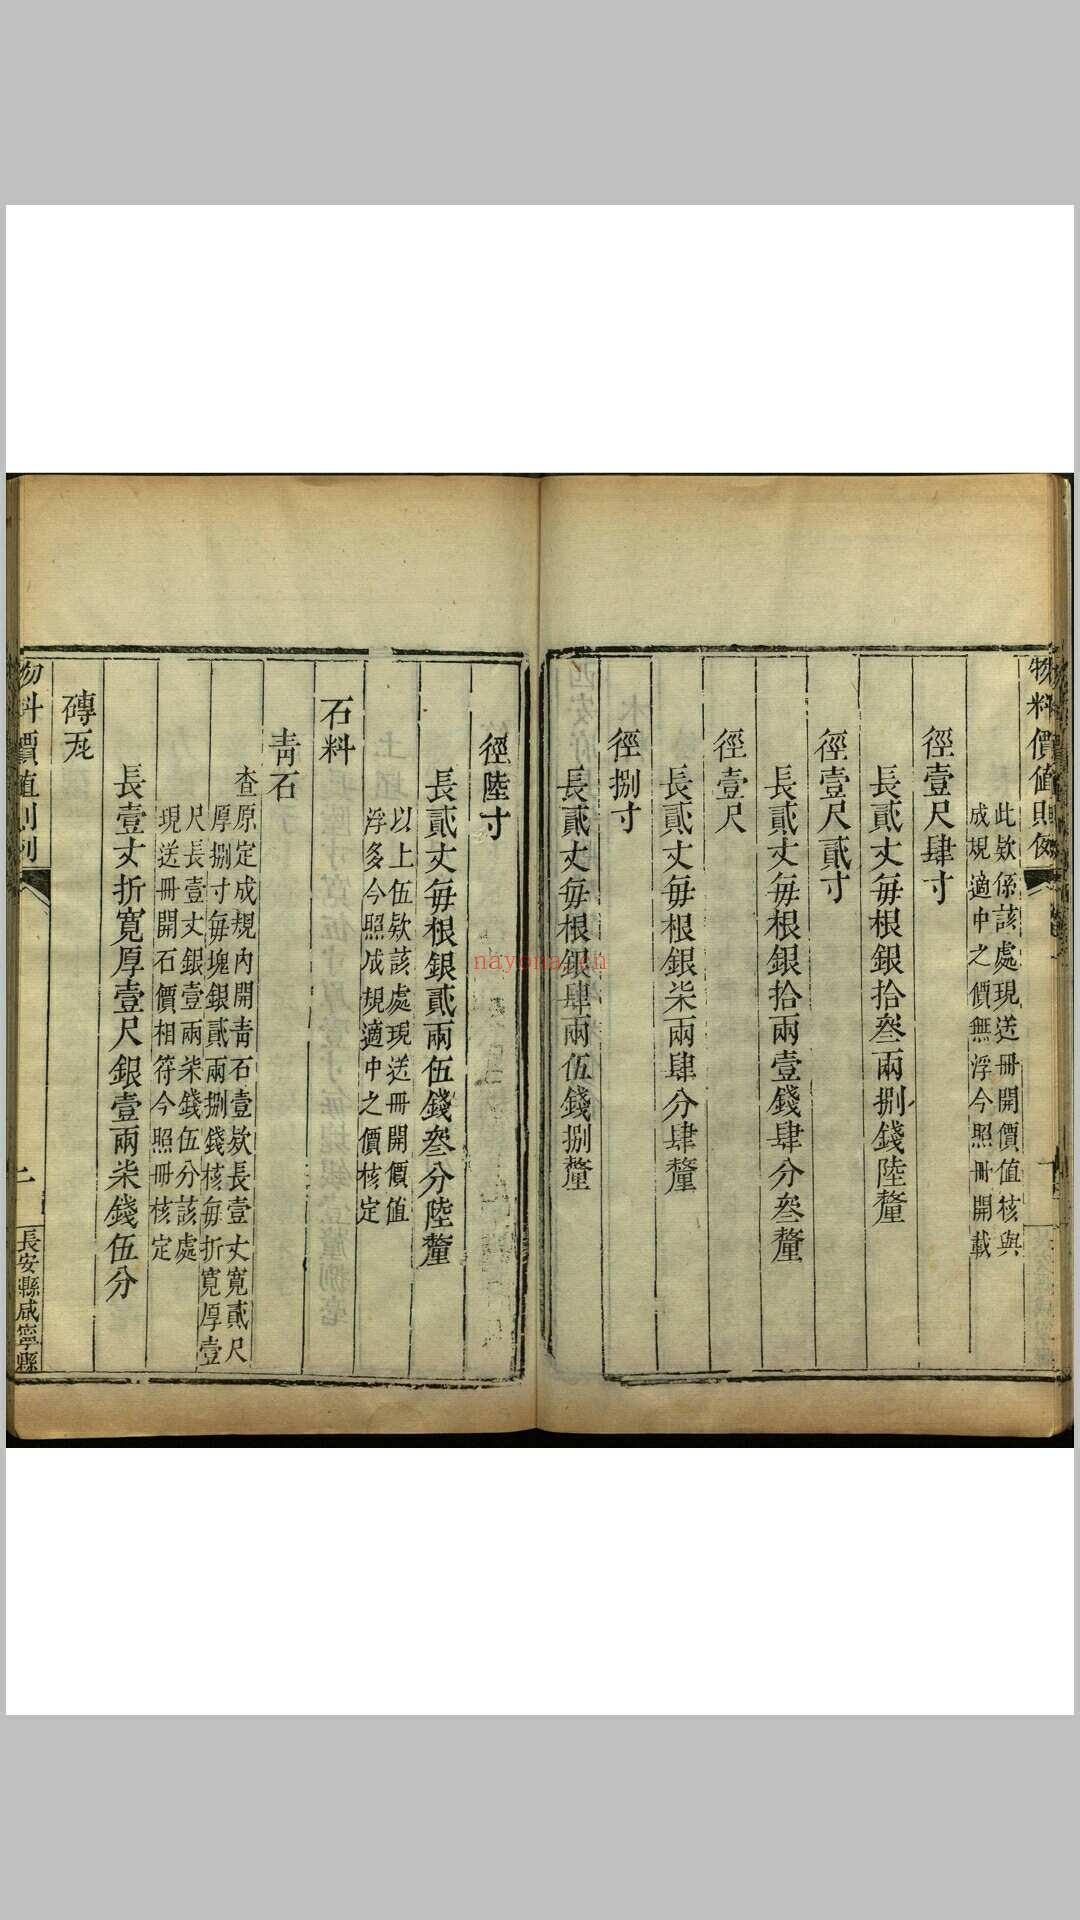 物料價值則例
此欵係該處現送冊開價值核與
成規適中之價無浮今照冊開載
徑壹尺肆寸
長貳丈每根銀拾叁兩捌錢陸釐
徑壹尺貳寸
長貳丈每根銀拾兩壹錢肆分叁釐
徑壹尺
長貳丈每根銀柒兩肆分肆釐
徑捌寸
長貳丈每根銀肆兩伍錢捌釐
徑陸寸
長貳丈每根銀貳兩伍錢叁分陸釐
以上伍欵該處現送冊開價值
浮多今照成規適中之價核定
石料
青石
查原定成規內開青石壹欵長壹丈寬貳尺
厚捌寸每塊銀貳兩捌錢核每折寬厚壹
尺長壹丈銀壹兩柒錢伍分該處
現送冊開石價相符今照冊核定
長壹丈折寬厚壹尺銀壹兩柒錢伍分
磚瓦
物料價值則例
二
長安縣咸寧縣
nayona.cn